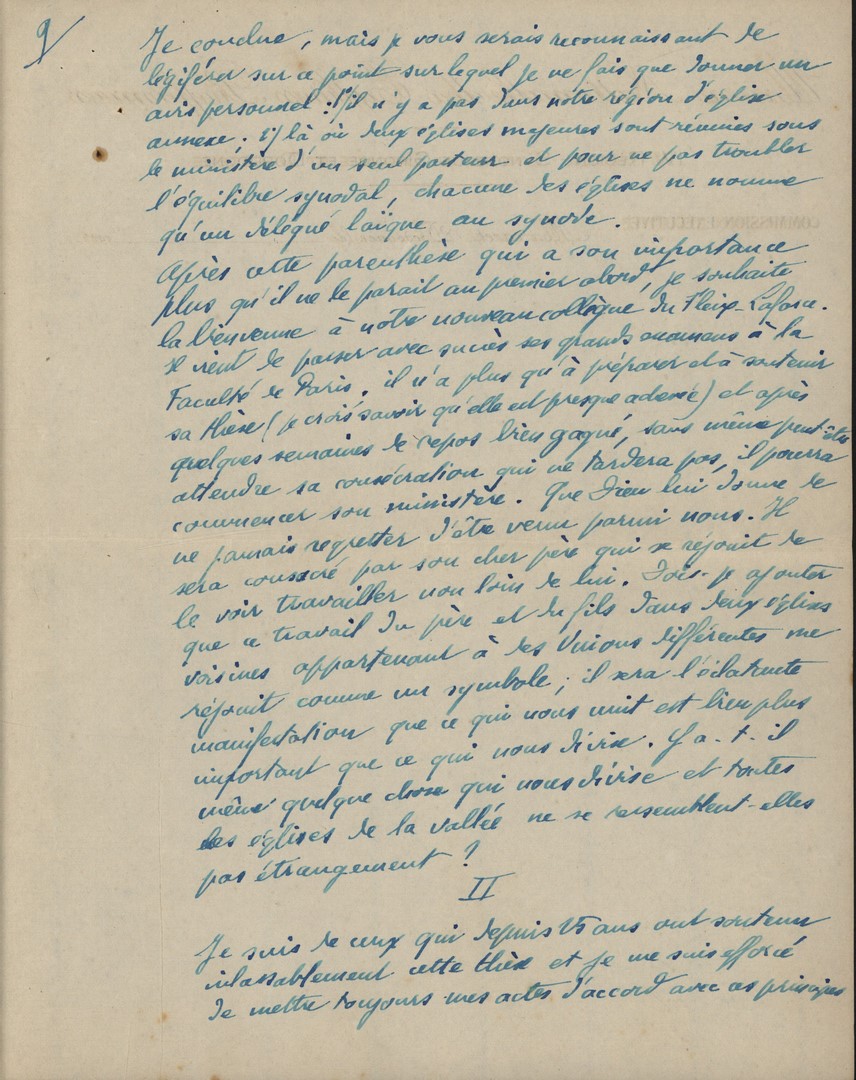 9/
Je conclue, mais je vous serais reconnaissant de
légiférer sur ce point sur lequel je ne fais que donner un
avis personnel : 1/ il n'y a pas dans notre région d'église
annexe ; 2/ là où deux églises majeures sont réunies sous
le ministère d'un seul pasteur et pour ne pas troubler
l'équilibre synodal, chacune des églises ne nomme
qu'un délégué laïque au synode.
COMMISSION EXÉCUTIVE
Après cette parenthèse qui a son importance
plus qu'il ne le parait au premier abord, je souhaite
la bienvenue à notre nouveau collègue du Fleix-Laforce.
Il vient de passer avec succès ses grands examens à la
Faculté de Paris, il n'a plus qu'à préparer et à soutenir
sa thèse (je crois savoir qu'elle est presque achevée) et après
quelques semaines de repos bien gagné, sans même peut-être
attendre sa consécration qui ne tardera pas, il pourra
commencer son ministère. Que Dieu lui donne de
ne jamais regretter d'être venu parmi nous. Il
sera consacré par son cher père qui se réjouit de
le voir travailler non loin de lui. Dois-je ajouter
que ce travail du père et du fils dans deux églises
voisines appartenant à des Unions différentes me
réjouit comme un symbole ; il sera l'éclatante
manifestation que ce qui nous unit est bien plus
important que ce qui nous divise. Y a-t-il
même quelque chose qui nous divise et toutes
les églises de la vallée ne se ressemblent-elles
pas étrangement ?
II
Je suis de ceux qui depuis 25 ans ont soutenu
inlassablement cette thèse et je me suis efforcé
de mettre toujours mes actes d'accord avec ces principes